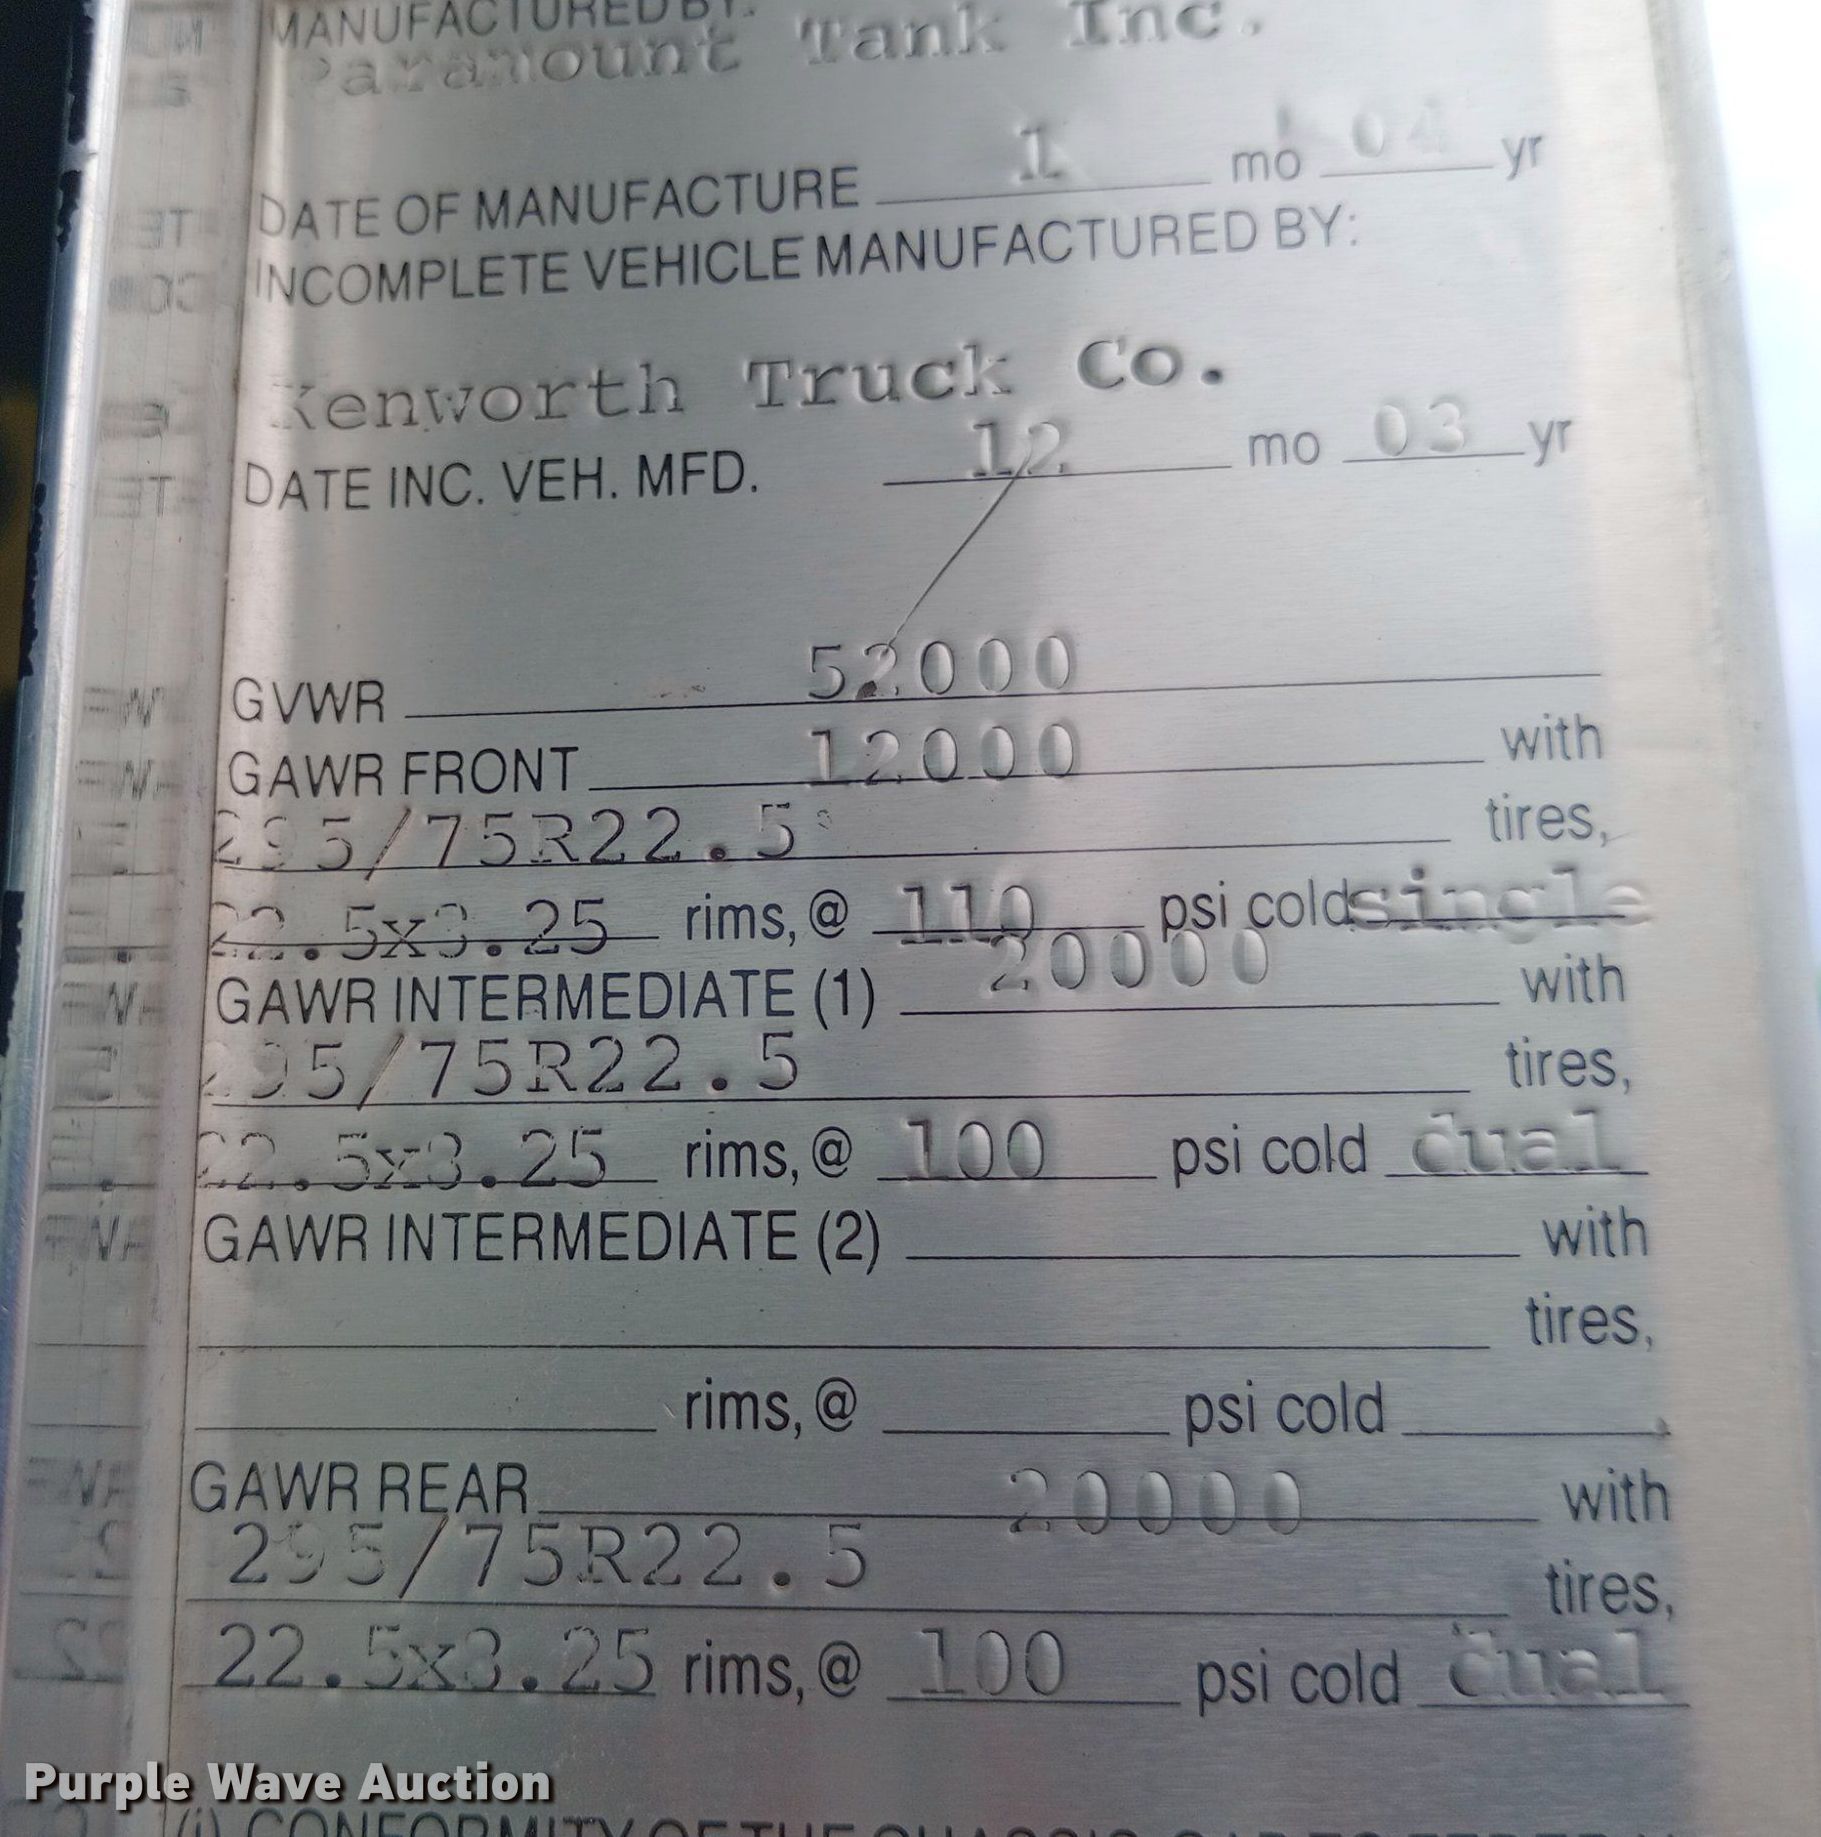 MANUFACTURED BY:
Paramount Tank Inc.
DATE OF MANUFACTURE 1 mo 04 yr
INCOMPLETE VEHICLE MANUFACTURED BY:
Kenworth Truck Co.
DATE INC. VEH. MFD. 12 mo 03 yr
GVWR 52000
GAWR FRONT 12000 with
295/75R22.5 tires,
22.5x8.25 rims, @ 110 psi cold single
GAWR INTERMEDIATE (1) 20000 with
295/75R22.5 tires,
22.5x8.25 rims, @ 100 psi cold dual
GAWR INTERMEDIATE (2) with
tires,
rims, @ psi cold
GAWR REAR 20000 with
295/75R22.5 tires,
22.5x8.25 rims, @ 100 psi cold dual
Purple Wave Auction
(i) CONFORMITY OF THE CHASSIS-CAB TO